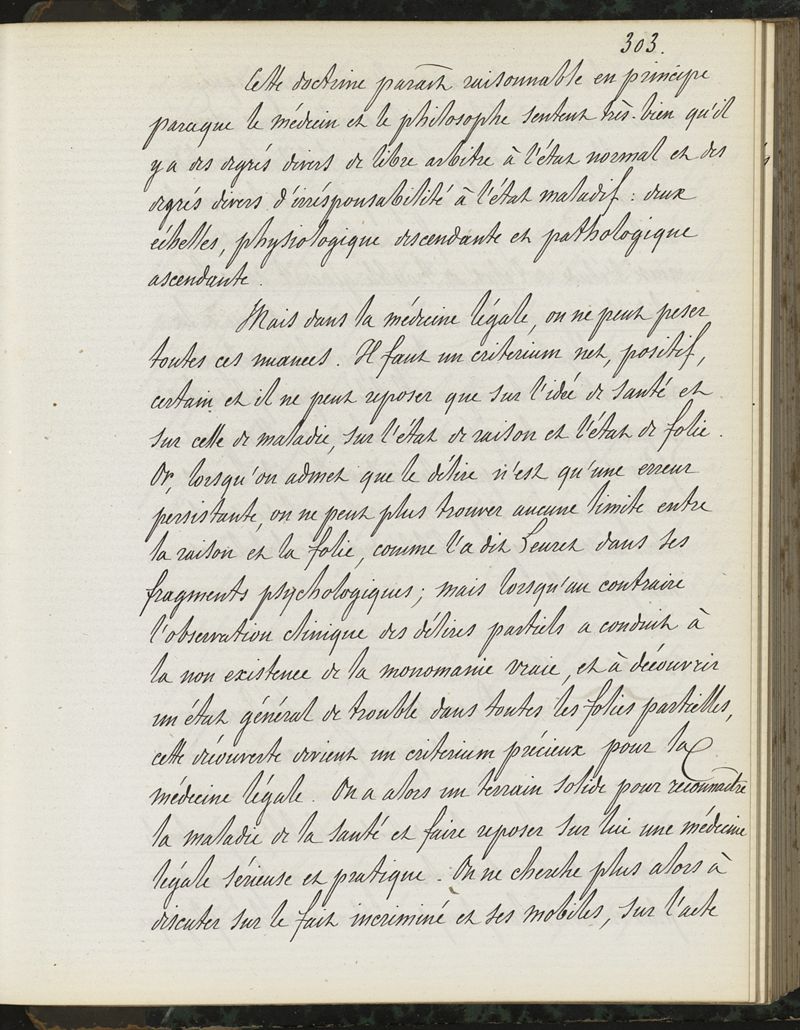 303.
Cette doctrine paraît raisonnable en principe
parceque le médecin et le philosophe sentent très-bien qu'il
y a des degrés divers de libre arbitre à l'état normal et des
degrés divers d'irrésponsabilité à l'état maladif : deux
échelles, physiologique descendante et pathologique
ascendante.
Mais dans la médecine légale, on ne peut peser
toutes ces nuances. Il faut un criterium net, positif,
certain et il ne peut reposer que sur l'idée de santé et
sur celle de maladie, sur l'état de raison et l'état de folie.
Or, lorsqu'on admet que le délire n'est qu'une erreur
persistante, on ne peut plus trouver aucune limite entre
la raison et la folie, comme l'a dit Leuret dans ses
fragments psychologiques ; mais lorsqu'au contraire
l'observation clinique des délires partiels a conduit à
la non existence de la monomanie vraie, et à découvrir
un état général de trouble dans toutes les folies partielles,
cette découverte devient un criterium précieux pour la
médecine légale. On a alors un terrain solide pour reconnaître
la maladie de la santé et faire reposer sur lui une médecine
légale sérieuse et pratique. On ne cherche plus alors à
discuter sur le fait incriminé et ses mobiles, sur l'acte